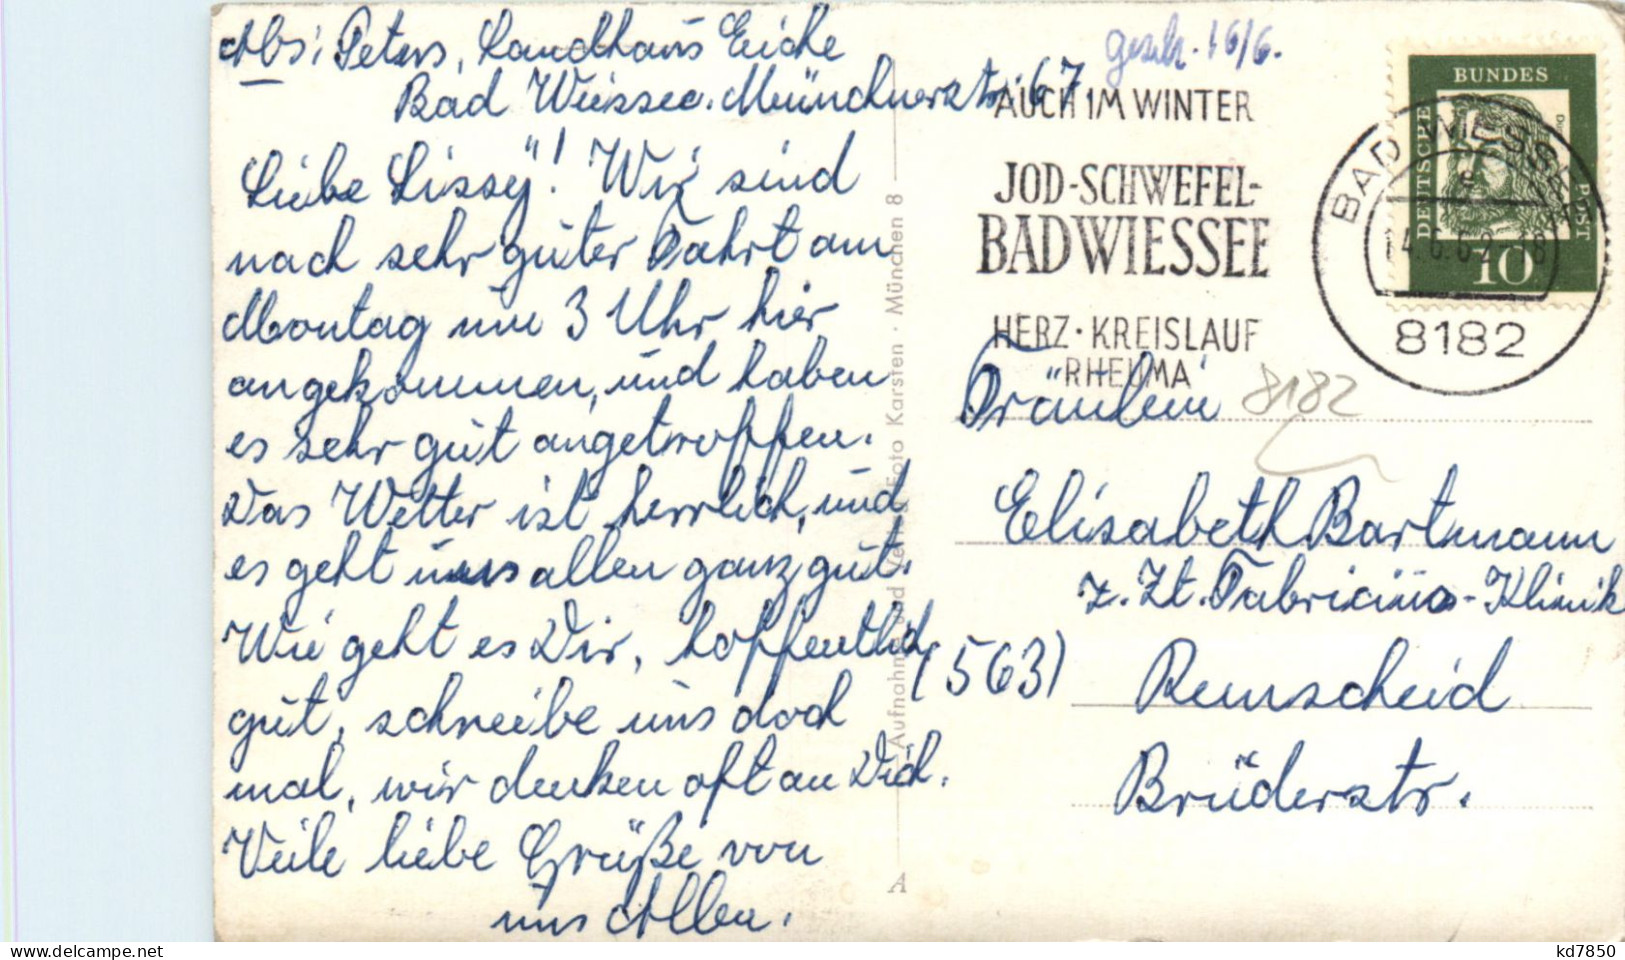 Abs: Peters, Landhaus Eiche
Bad Wiessee. Münchnerstr. 67.
Liebe Lissy! Wir sind
nach sehr guter Fahrt am
Montag um 3 Uhr hier
angekommen, und haben
es sehr gut angetroffen.
Das Wetter ist herrlich, und
es geht uns allen ganz gut.
Wie geht es Dir, hoffentlich
gut, schreibe uns doch
mal, wir denken oft an Dich.
Viele liebe Grüße von
uns Allen.
Aufnahme und Verlag Foto Karsten · München 8
A
geschr. 16/6.
AUCH IM WINTER
JOD-SCHWEFEL-
BAD WIESSEE
HERZ · KREISLAUF
RHEUMA
BAD WIESSEE
e
14.6.62-18
8182
DEUTSCHE
BUNDES
POST
10
8182
Fräulein
Elisabeth Bartmann
z. Zt. Fabricius-Klinik
(563) Remscheid
Brüderstr.
www.delcampe.net
kd7850